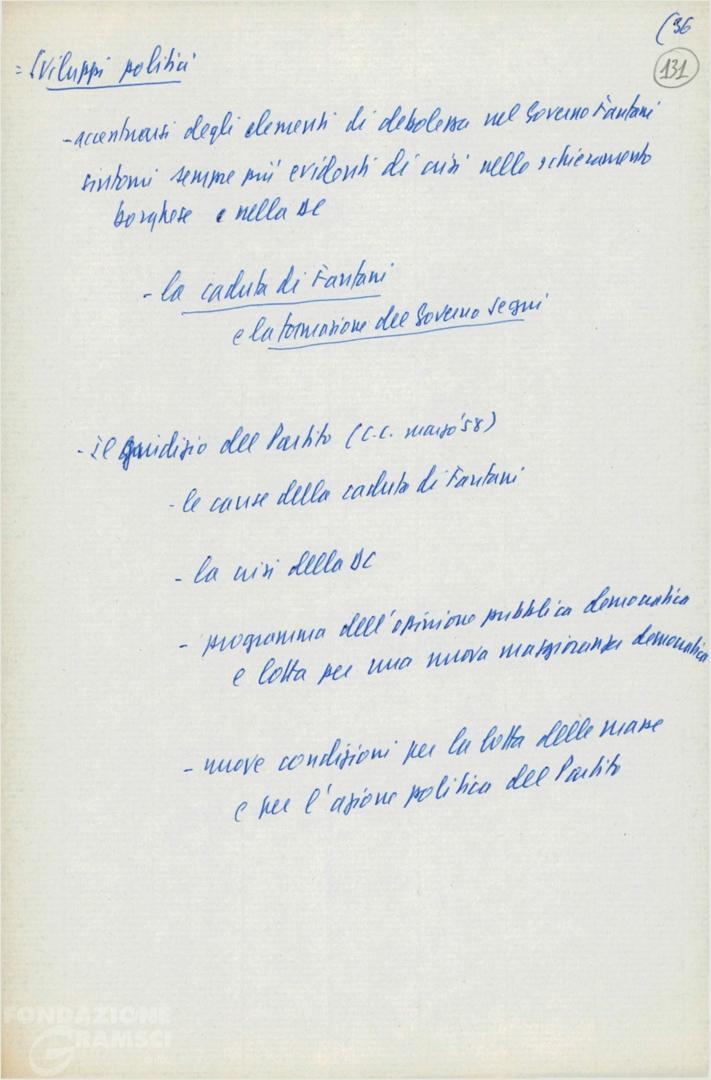 (36
131
= Sviluppi politici
- accentuarsi degli elementi di debolezza nel Governo Fanfani
sintomi sempre più evidenti di crisi nello schieramento
borghese e nella DC
- la caduta di Fanfani
e la formazione del Governo Segni
- il giudizio del Partito (C.C. marzo '58)
- le cause della caduta di Fanfani
- la crisi della DC
- programma dell'opinione pubblica democratica
e lotta per una nuova maggioranza democratica
- nuove condizioni per la lotta delle masse
e per l'azione politica del Partito
FONDAZIONE
GRAMSCI